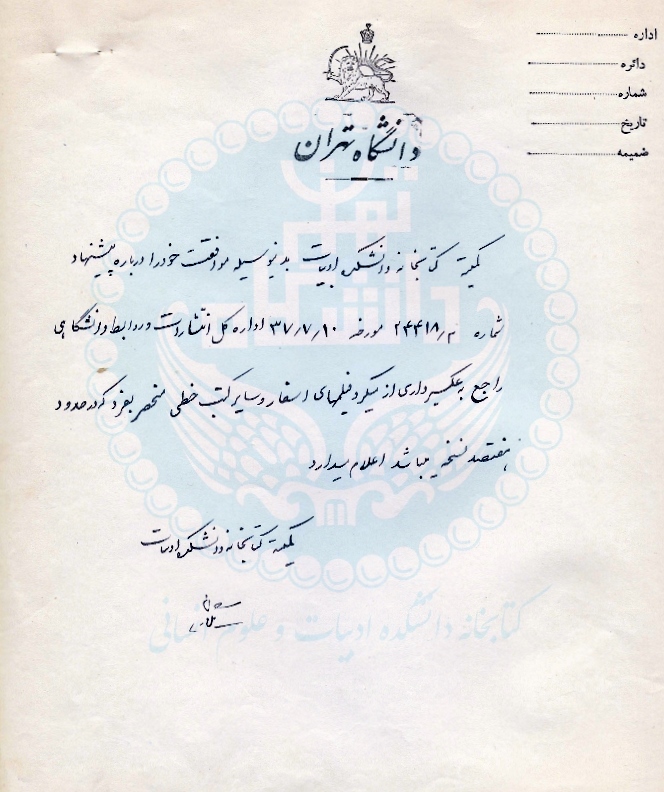 اداره
دائره
شماره
تاریخ
ضمیمه
دانشگاه تهران
کمیته کتابخانه دانشکده ادبیات بدینوسیله موافقت خود را درباره پیشنهاد
شماره ۲۴۴۱۸/م مورخه ۳۷/۷/۱۰ اداره کل انتشارات و روابط دانشگاهی
راجع به عکسبرداری از میکروفیلمهای اسفار و سایر کتب خطی منحصر بفرد که در حدود
هفتصد نسخه میباشد اعلام میدارد
کمیته کتابخانه دانشکده ادبیات
کتابخانه دانشکده ادبیات و علوم انسانی